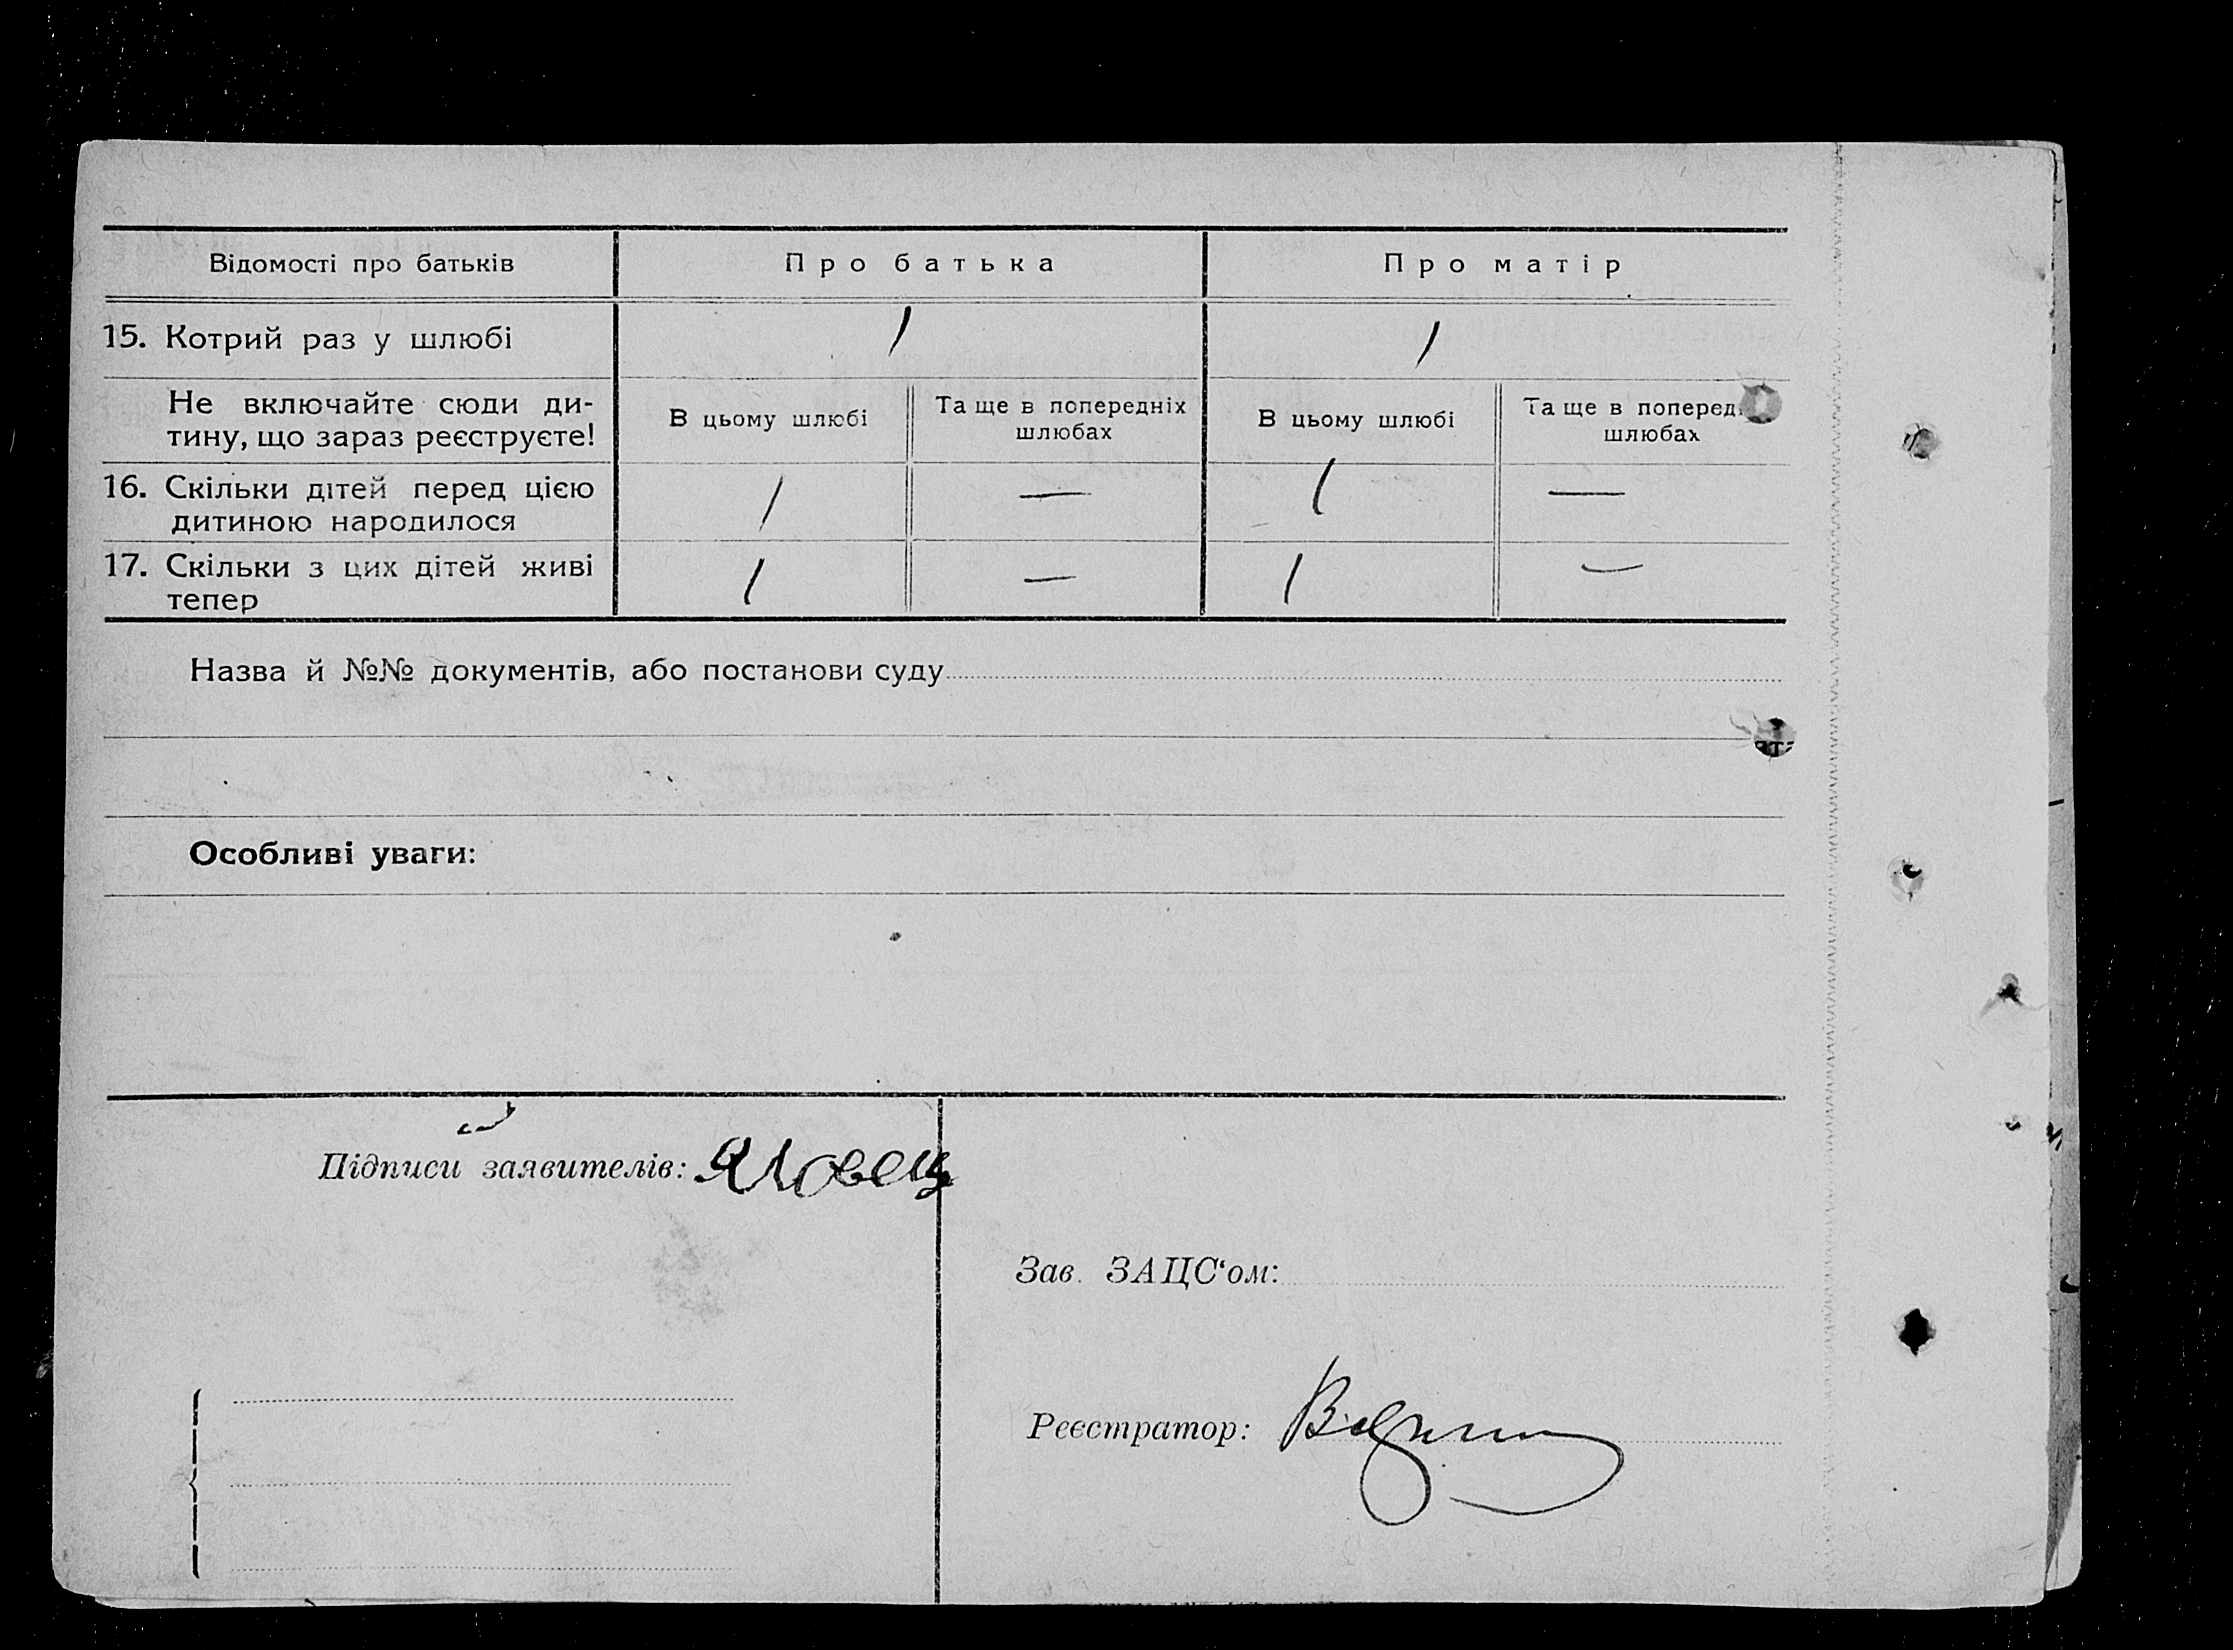 Відомості про батьків Про батька Про матір
15. Котрий раз у шлюбі 1 1
Не включайте сюди ди-
тину, що зараз реєструєте!
В цьому шлюбі
Та ще в попередніх
шлюбах
В цьому шлюбі
Та ще в поперед
шлюбах
16. Скільки дітей перед цією
дитиною народилося
1 — 1 —
17. Скільки з цих дітей живі
тепер
1 — 1 —
Назва й №№ документів, або постанови суду
Особливі уваги:
Підписи заявителів: Яловец
Зав. ЗАЦС‘ом:
Реєстратор: